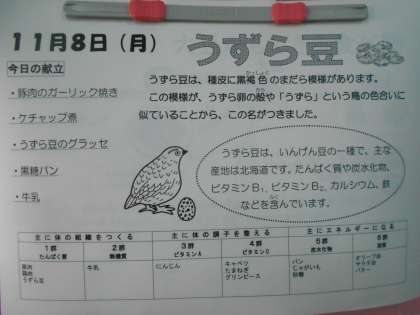 11月8日（月）
うずら豆
今日の献立
・豚肉のガーリック焼き
・ケチャップ煮
・うずら豆のグラッセ
・黒糖パン
・牛乳
うずら豆は、種皮に黒褐色のまだら模様があります。
この模様が、うずら卵の殻や「うずら」という鳥の色合いに
似ていることから、この名がつきました。
うずら豆は、いんげん豆の一種で、主な
産地は北海道です。たんぱく質や炭水化物、
ビタミンB₁、ビタミンB₂、カルシウム、鉄
などを含んでいます。
主に体の組織をつくる 主に体の調子を整える 主にエネルギーになる
1群 2群 3群 4群 5群 6群
たんぱく質 無機質 ビタミンA ビタミンC 炭水化物 脂質
豚肉 牛乳 にんじん キャベツ パン オリーブ油
鶏肉 たまねぎ じゃがいも サラダ油
うずら豆 グリンピース 砂糖 バター